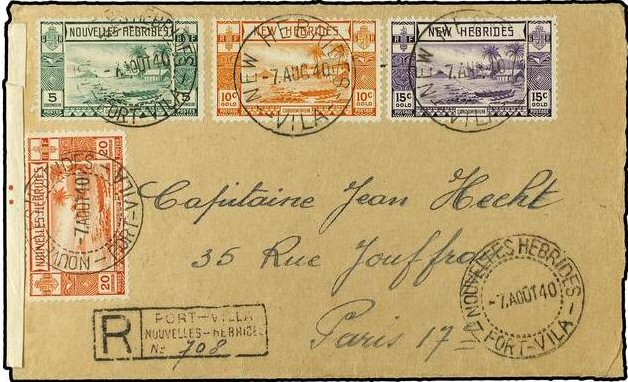 NOUVELLES HEBRIDES
RF
5
5
-7 AOUT 40
PORT-VILA
NEW HEBRIDES
RF
10c
GOLD
10c
GOLD
CONDOMINIUM
NEW HEBRIDES
-7 AUG 40
VILA
NEW HEBRIDES
RF
15c
GOLD
15c
GOLD
NEW HEBRIDES
-7 AUG 40
VILA
NOUVELLES-HEBRIDES
RF
20
20
-7 AOUT 40
PORT-VILA
Capitaine Jean Hecht
35 Rue Jouffroy
Paris 17
NOUVELLES HEBRIDES
-7 AOUT 40
PORT-VILA
R
PORT-VILLA
NOUVELLES-HEBRIDES
No 708